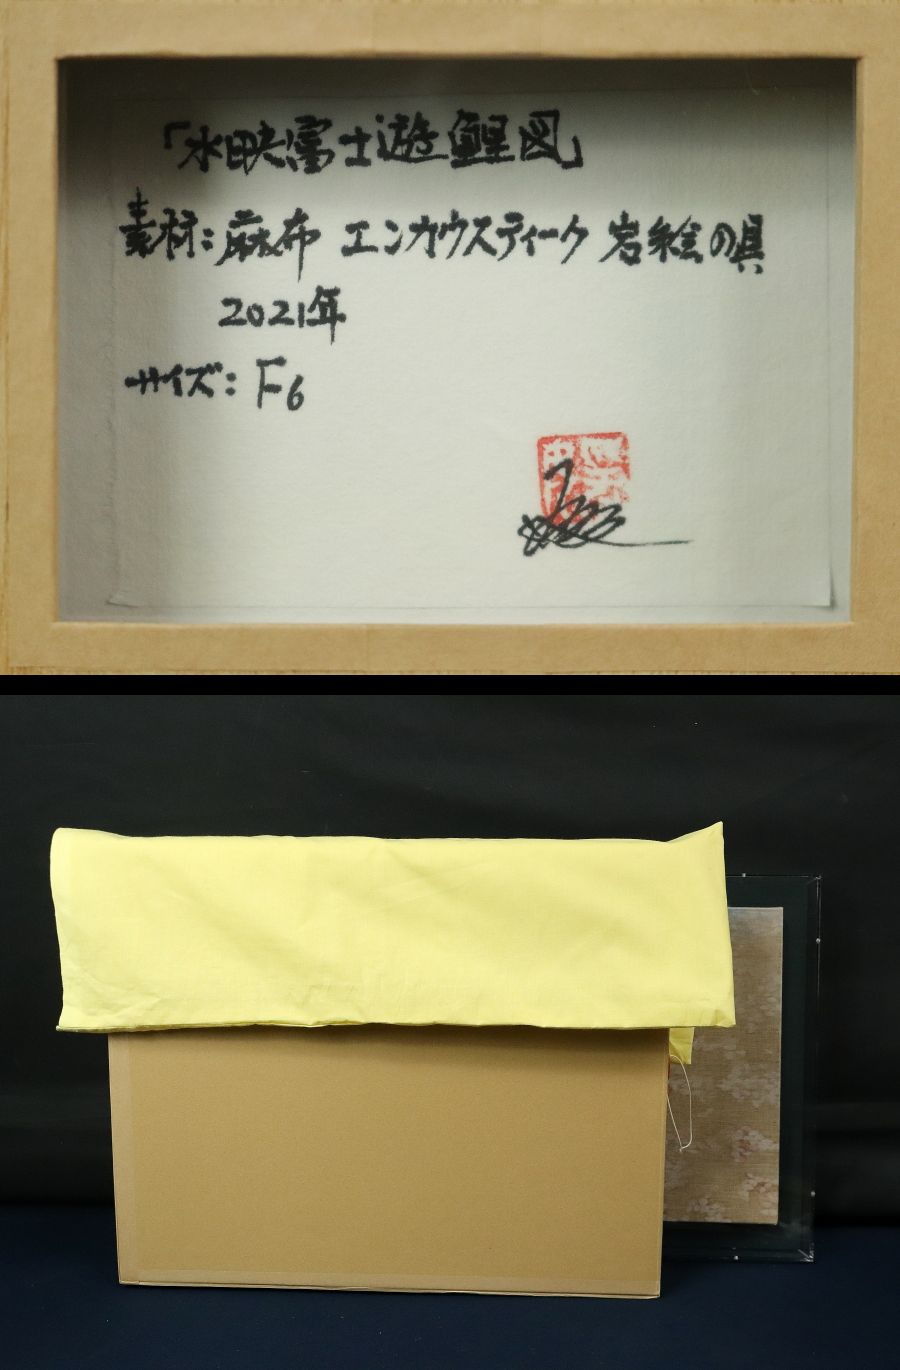 「水映富士遊鯉図」
素材:麻布 エンカウスティーク 岩絵の具
2021年
サイズ:F6